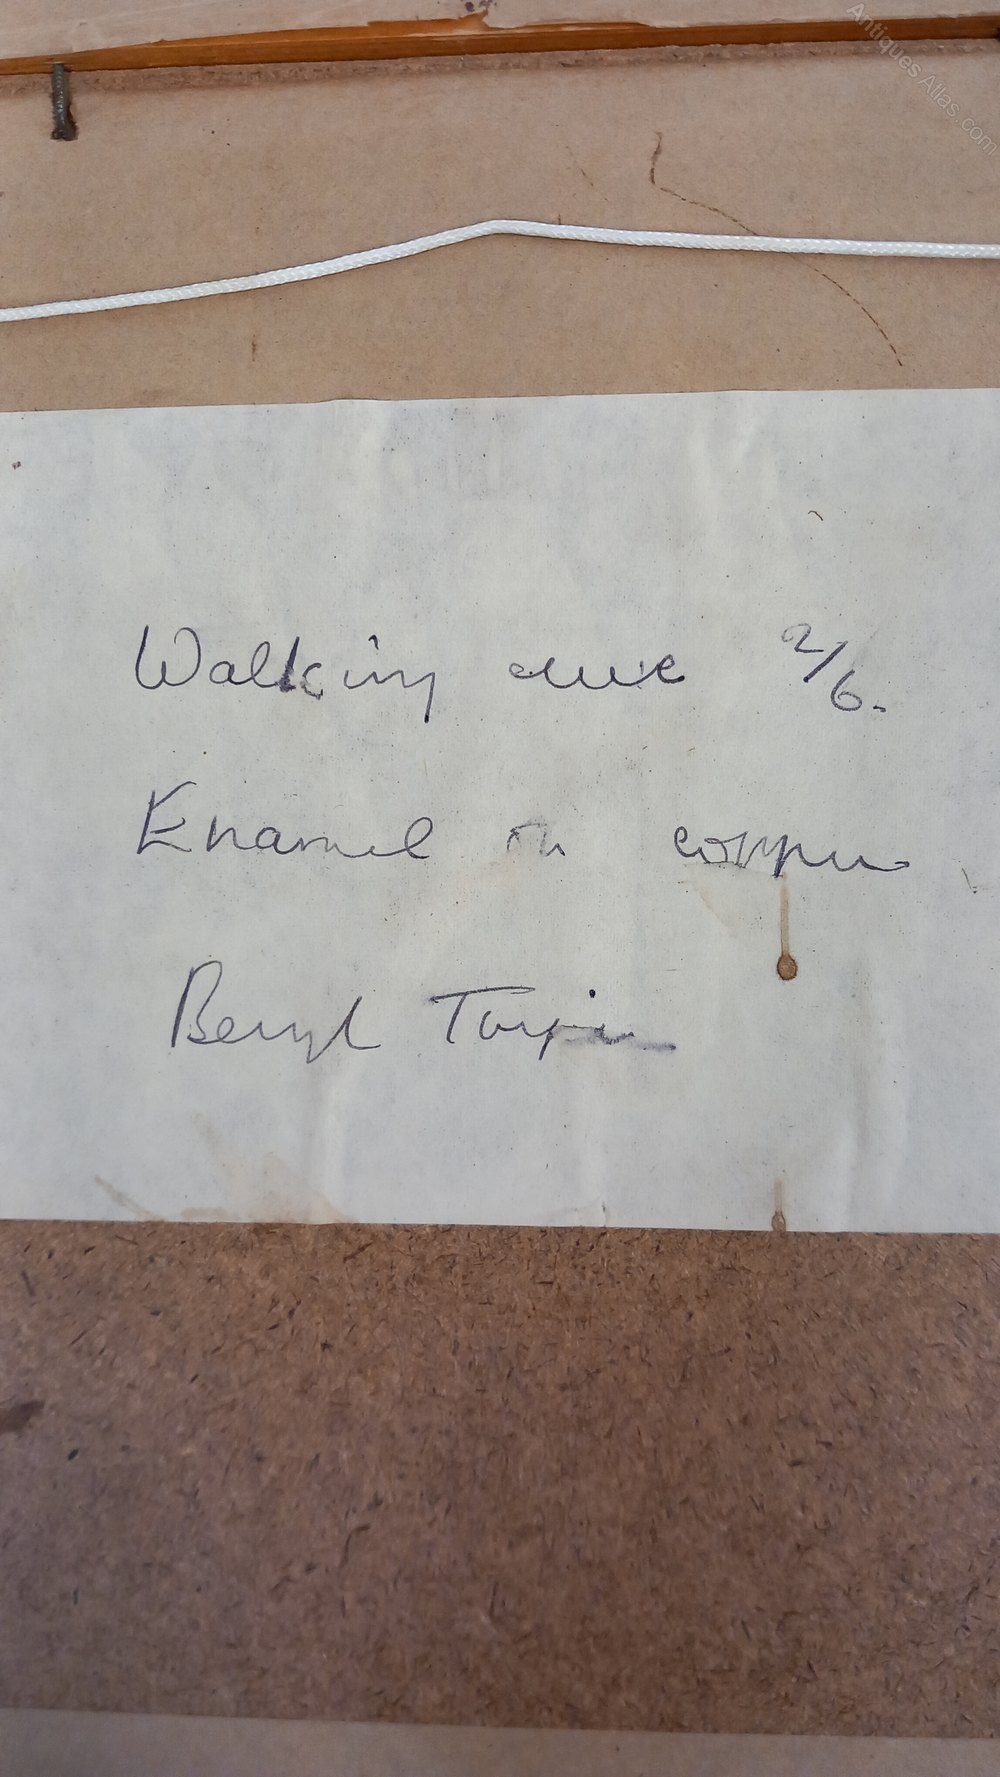 AntiquesAtlas.com
Walking 2/6.
Enamel on copper
Beryl Turpin